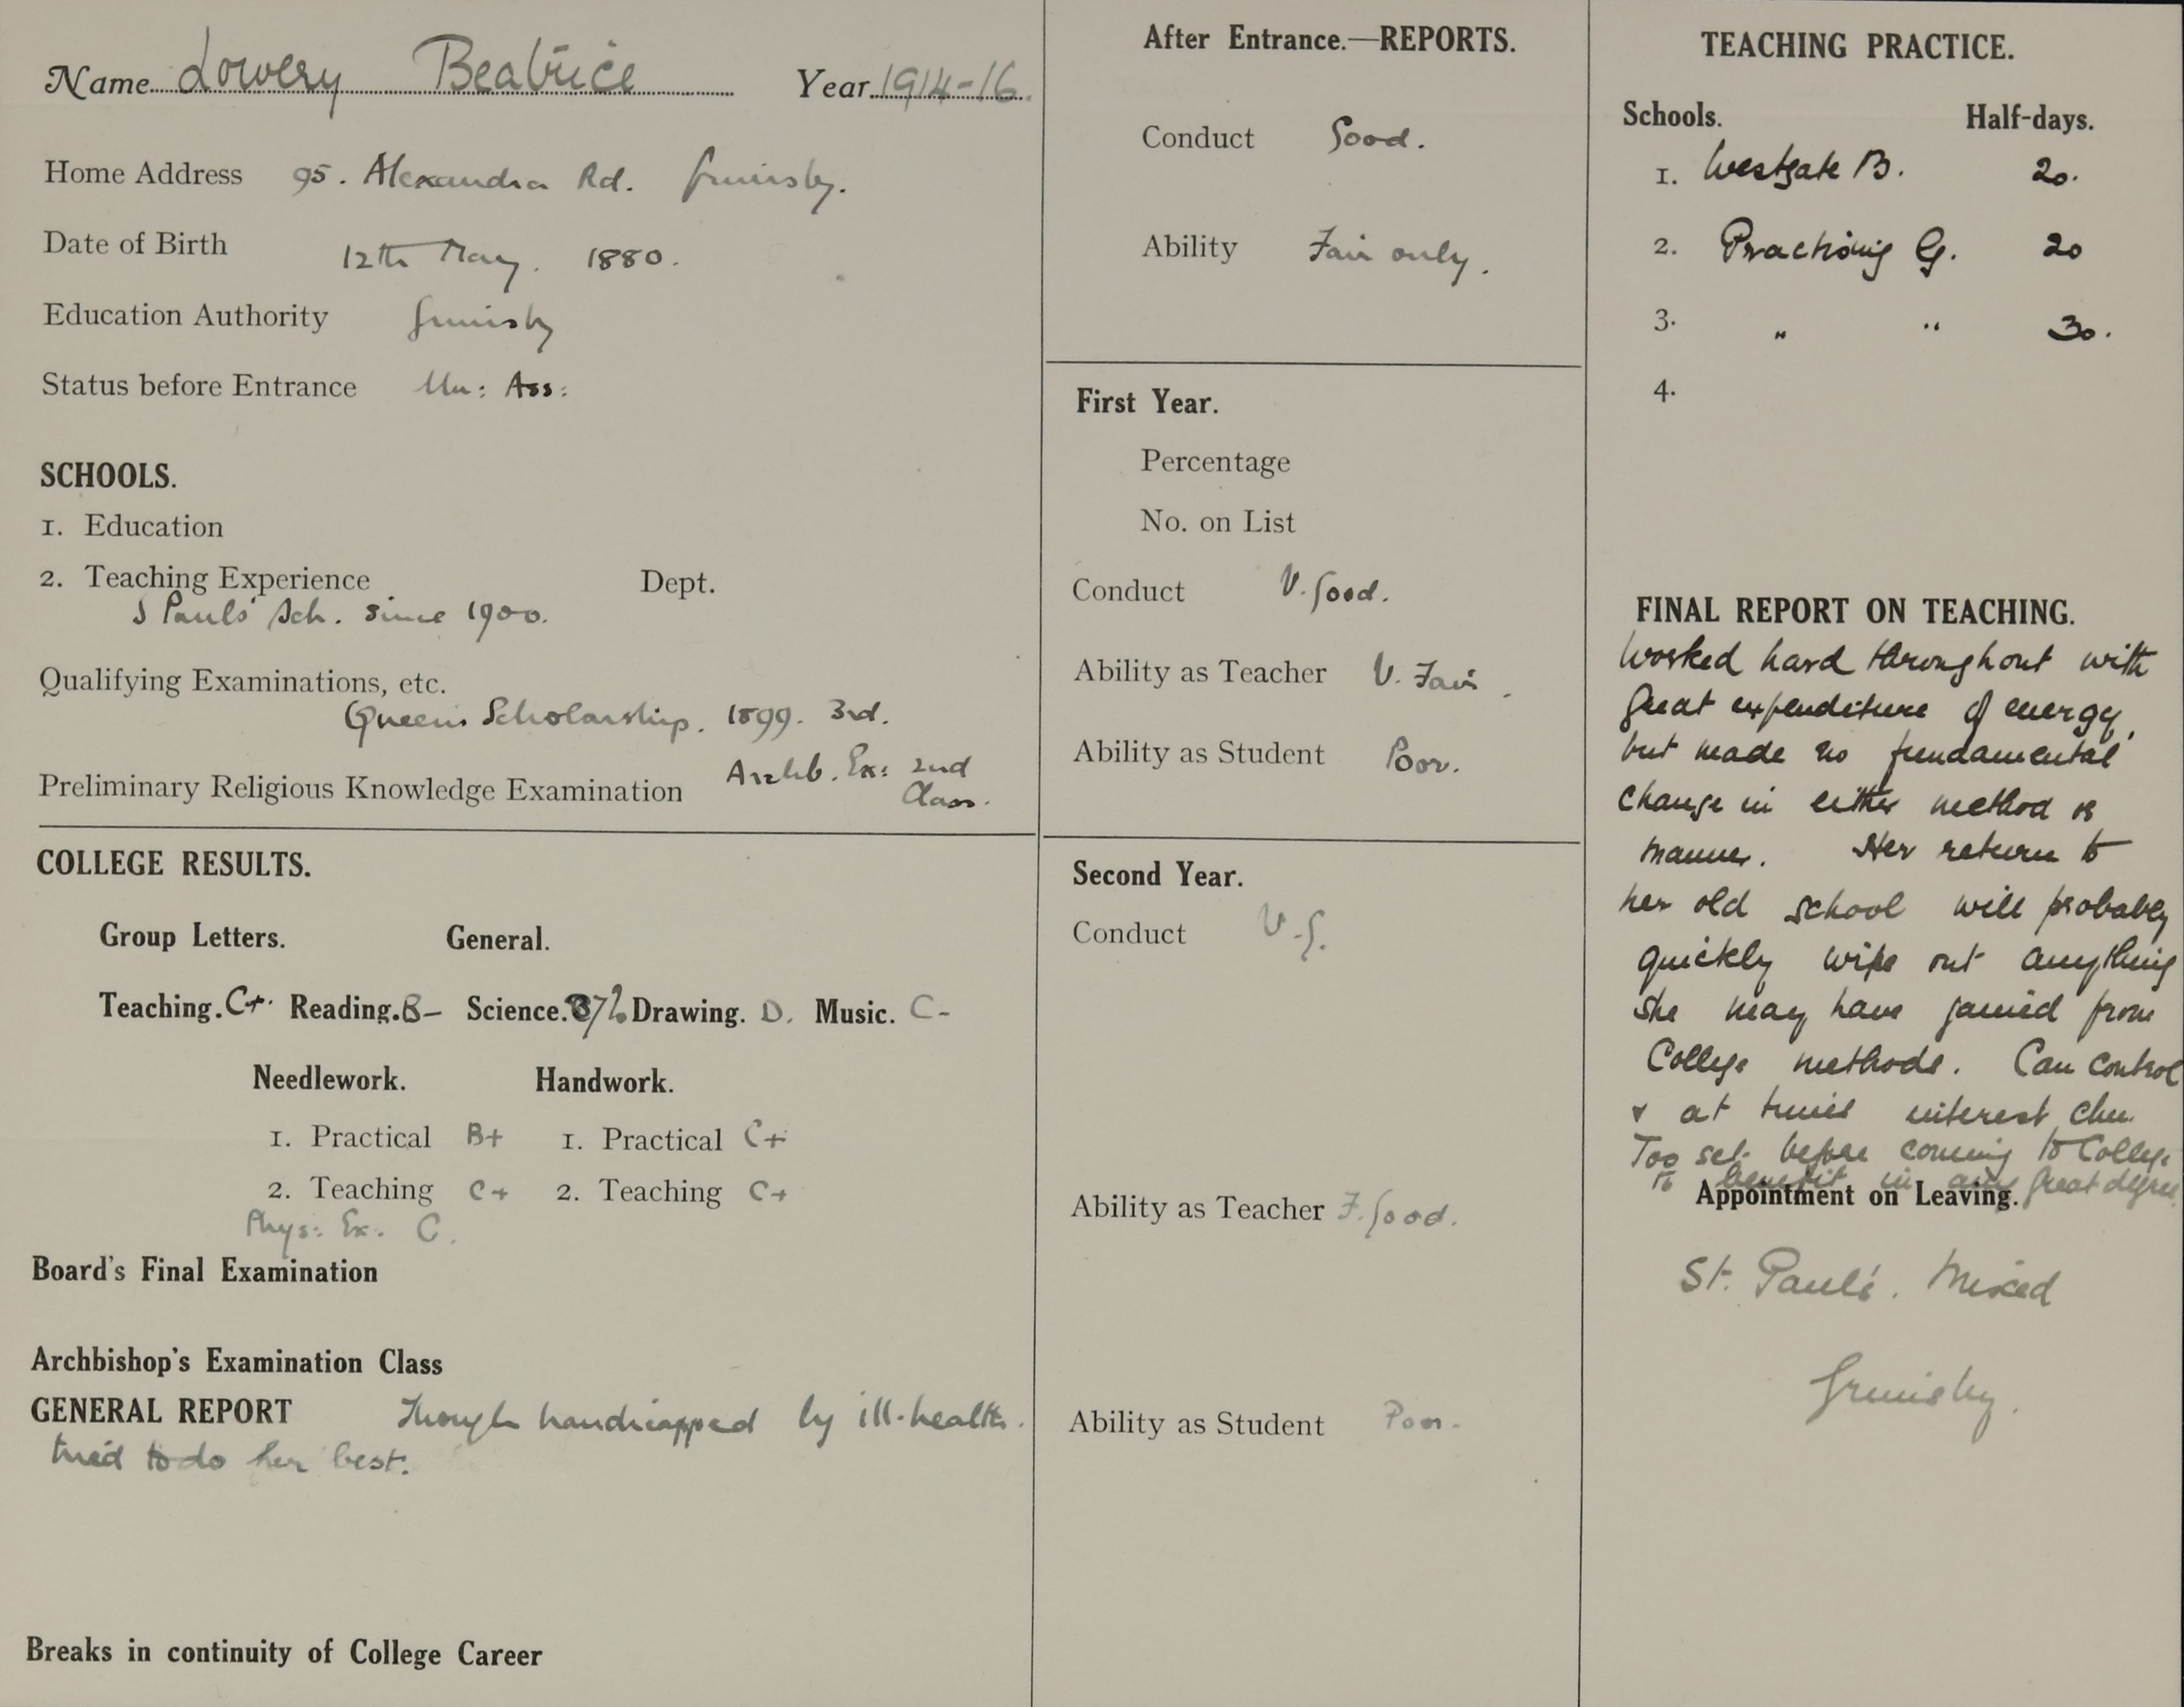 Name Lowery Beatrice Year 1914-16.
Home Address 95. Alexandra Rd. Grimsby.
Date of Birth 12th May. 1880.
Education Authority Grimsby
Status before Entrance Un: Ass:
SCHOOLS.
1. Education
2. Teaching Experience Dept.
S Pauls' Sch. since 1900.
Qualifying Examinations, etc.
Queen's Scholarship. 1899. 3rd.
Preliminary Religious Knowledge Examination Archb. Ex: 2nd
Class.
COLLEGE RESULTS.
Group Letters. General.
Teaching. C+. Reading. B- Science. Drawing. D. Music. C-
Needlework. Handwork.
1. Practical B+ 1. Practical C+
2. Teaching C+ 2. Teaching C+
Phys: Ex: C.
Board's Final Examination
Archbishop's Examination Class
GENERAL REPORT Though handicapped by ill-health.
tried to do her best.
Breaks in continuity of College Career
After Entrance.—REPORTS.
Conduct Good.
Ability Fair only.
First Year.
Percentage
No. on List
Conduct V. Good.
Ability as Teacher V. Fair.
Ability as Student Poor.
Second Year.
Conduct V.G.
Ability as Teacher F. Good.
Ability as Student Poor.
TEACHING PRACTICE.
Schools. Half-days.
1. Westgate B. 20.
2. Practising G. 20
3. " " 30.
4.
FINAL REPORT ON TEACHING.
Worked hard throughout with
great expenditure of energy,
but made no fundamental
change in either method or
manner. Her return to
her old school will probably
quickly wipe out anything
she may have gained from
College methods. Can control
& at times interest chn.
Too set before coming to College
to benefit in any great degree
Appointment on Leaving.
St. Paul's. Mixed
Grimsby.